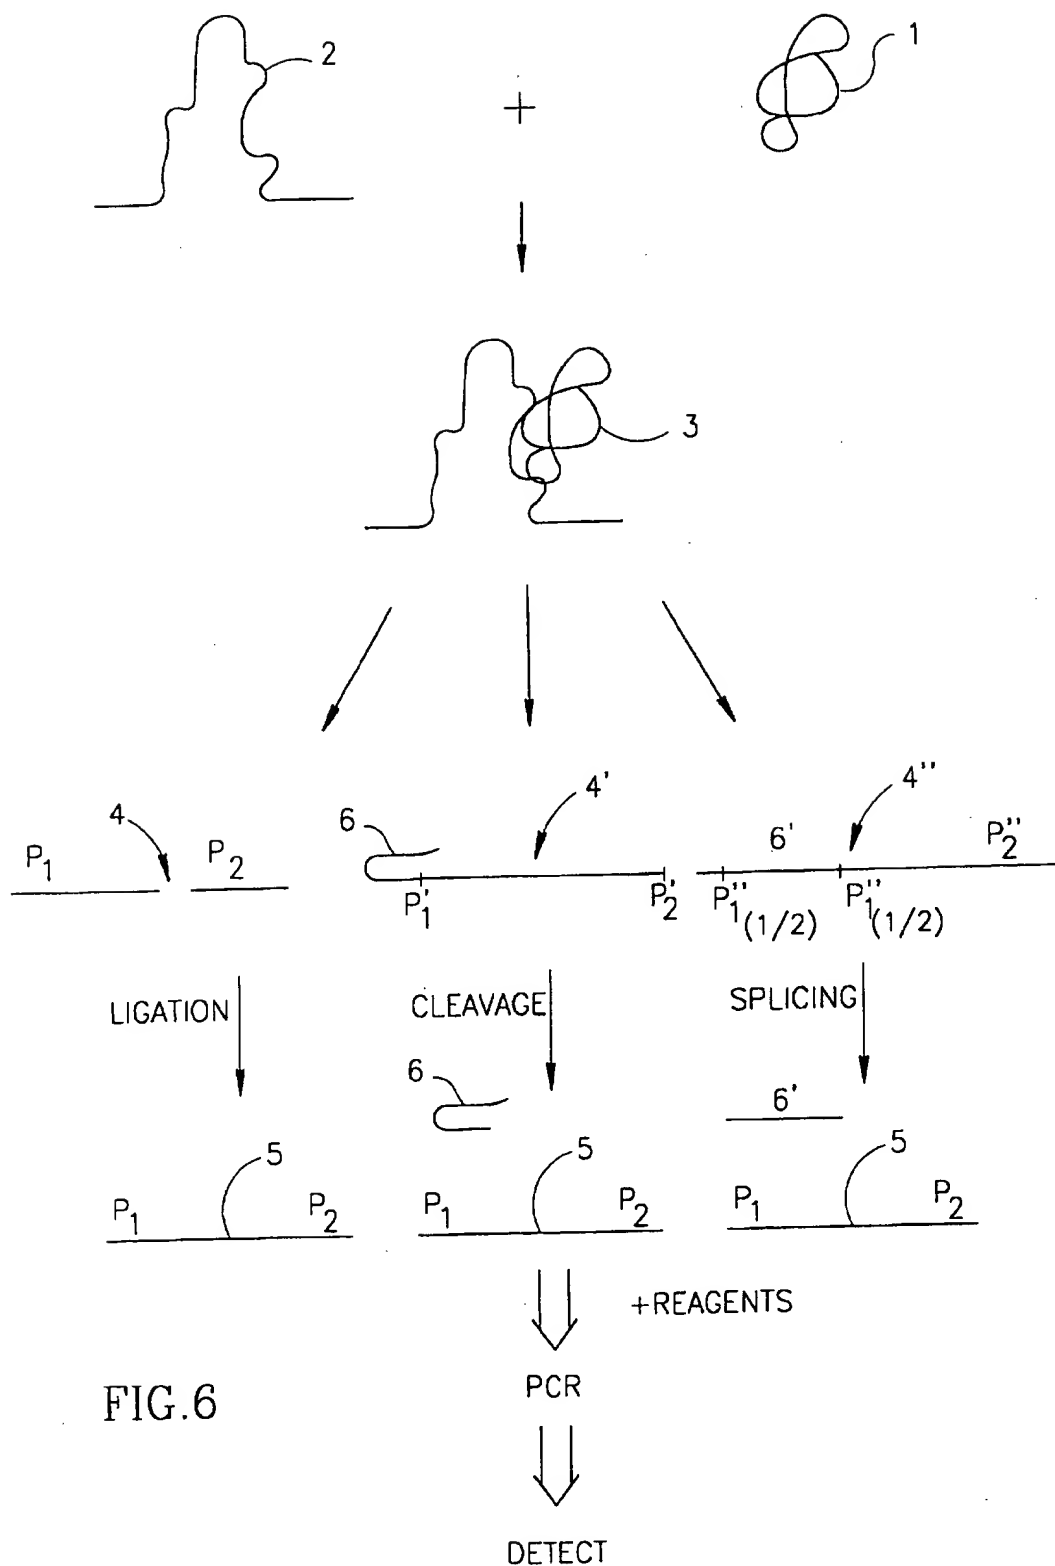 2
1
+
3
4
P1
P2
6
4'
P1'
P2'
6'
4''
P2''
P1''(1/2)
P1''(1/2)
LIGATION
CLEAVAGE
SPLICING
6
6'
5
P1
P2
5
P1
P2
5
P1
P2
+REAGENTS
PCR
FIG.6
DETECT